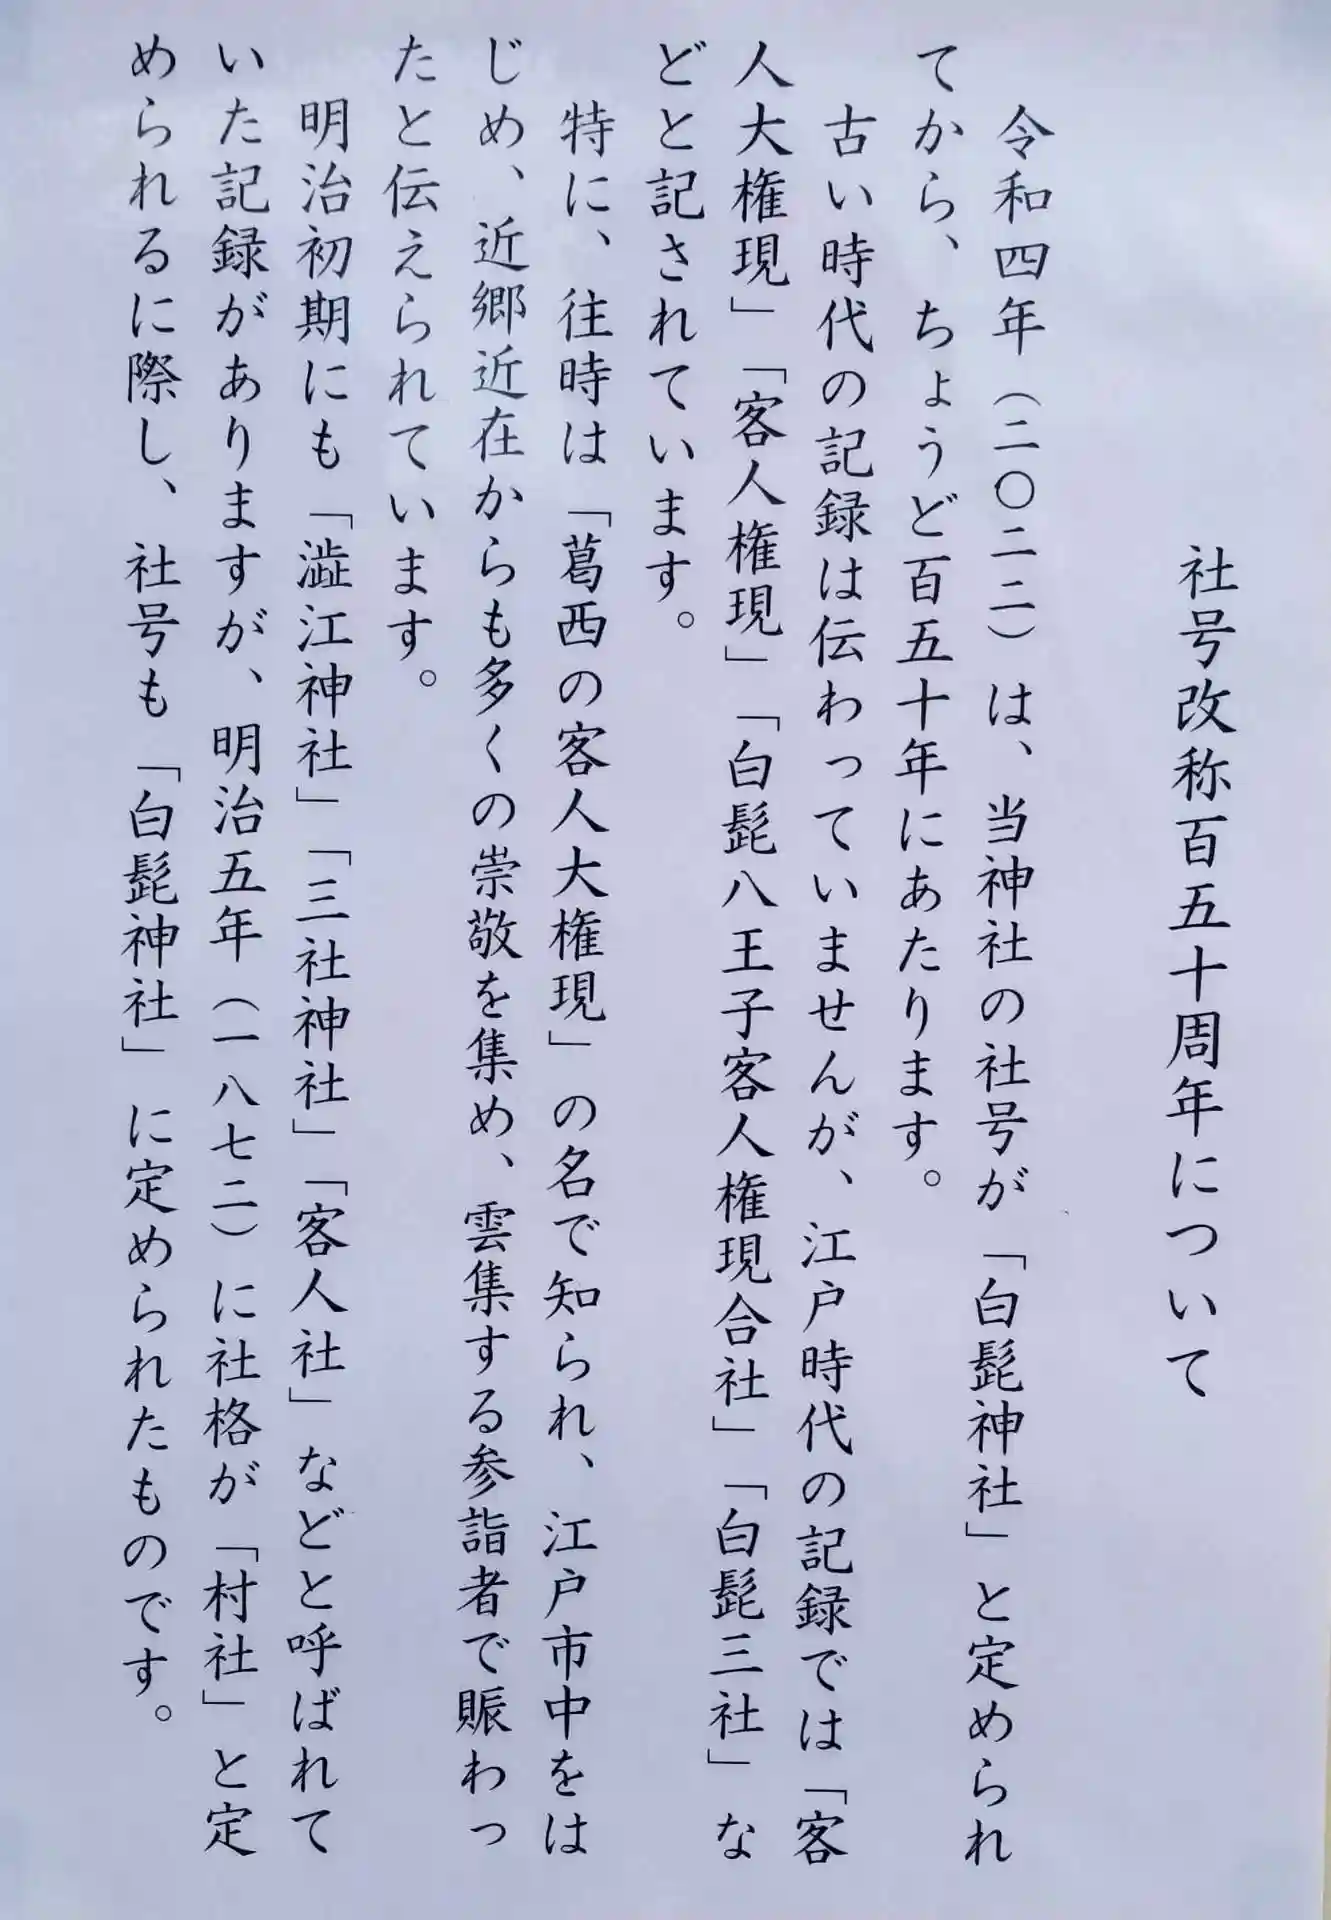 社号改称百五十周年について
令和四年（二〇二二）は、当神社の社号が「白髭神社」と定められ
てから、ちょうど百五十年にあたります。
古い時代の記録は伝わっていませんが、江戸時代の記録では「客
人大権現」「客人権現」「白髭八王子客人権現合社」「白髭三社」な
どと記されています。
特に、往時は「葛西の客人大権現」の名で知られ、江戸市中をは
じめ、近郷近在からも多くの崇敬を集め、雲集する参詣者で賑わっ
たと伝えられています。
明治初期にも「澁江神社」「三社神社」「客人社」などと呼ばれて
いた記録がありますが、明治五年（一八七二）に社格が「村社」と定
められるに際し、社号も「白髭神社」に定められたものです。